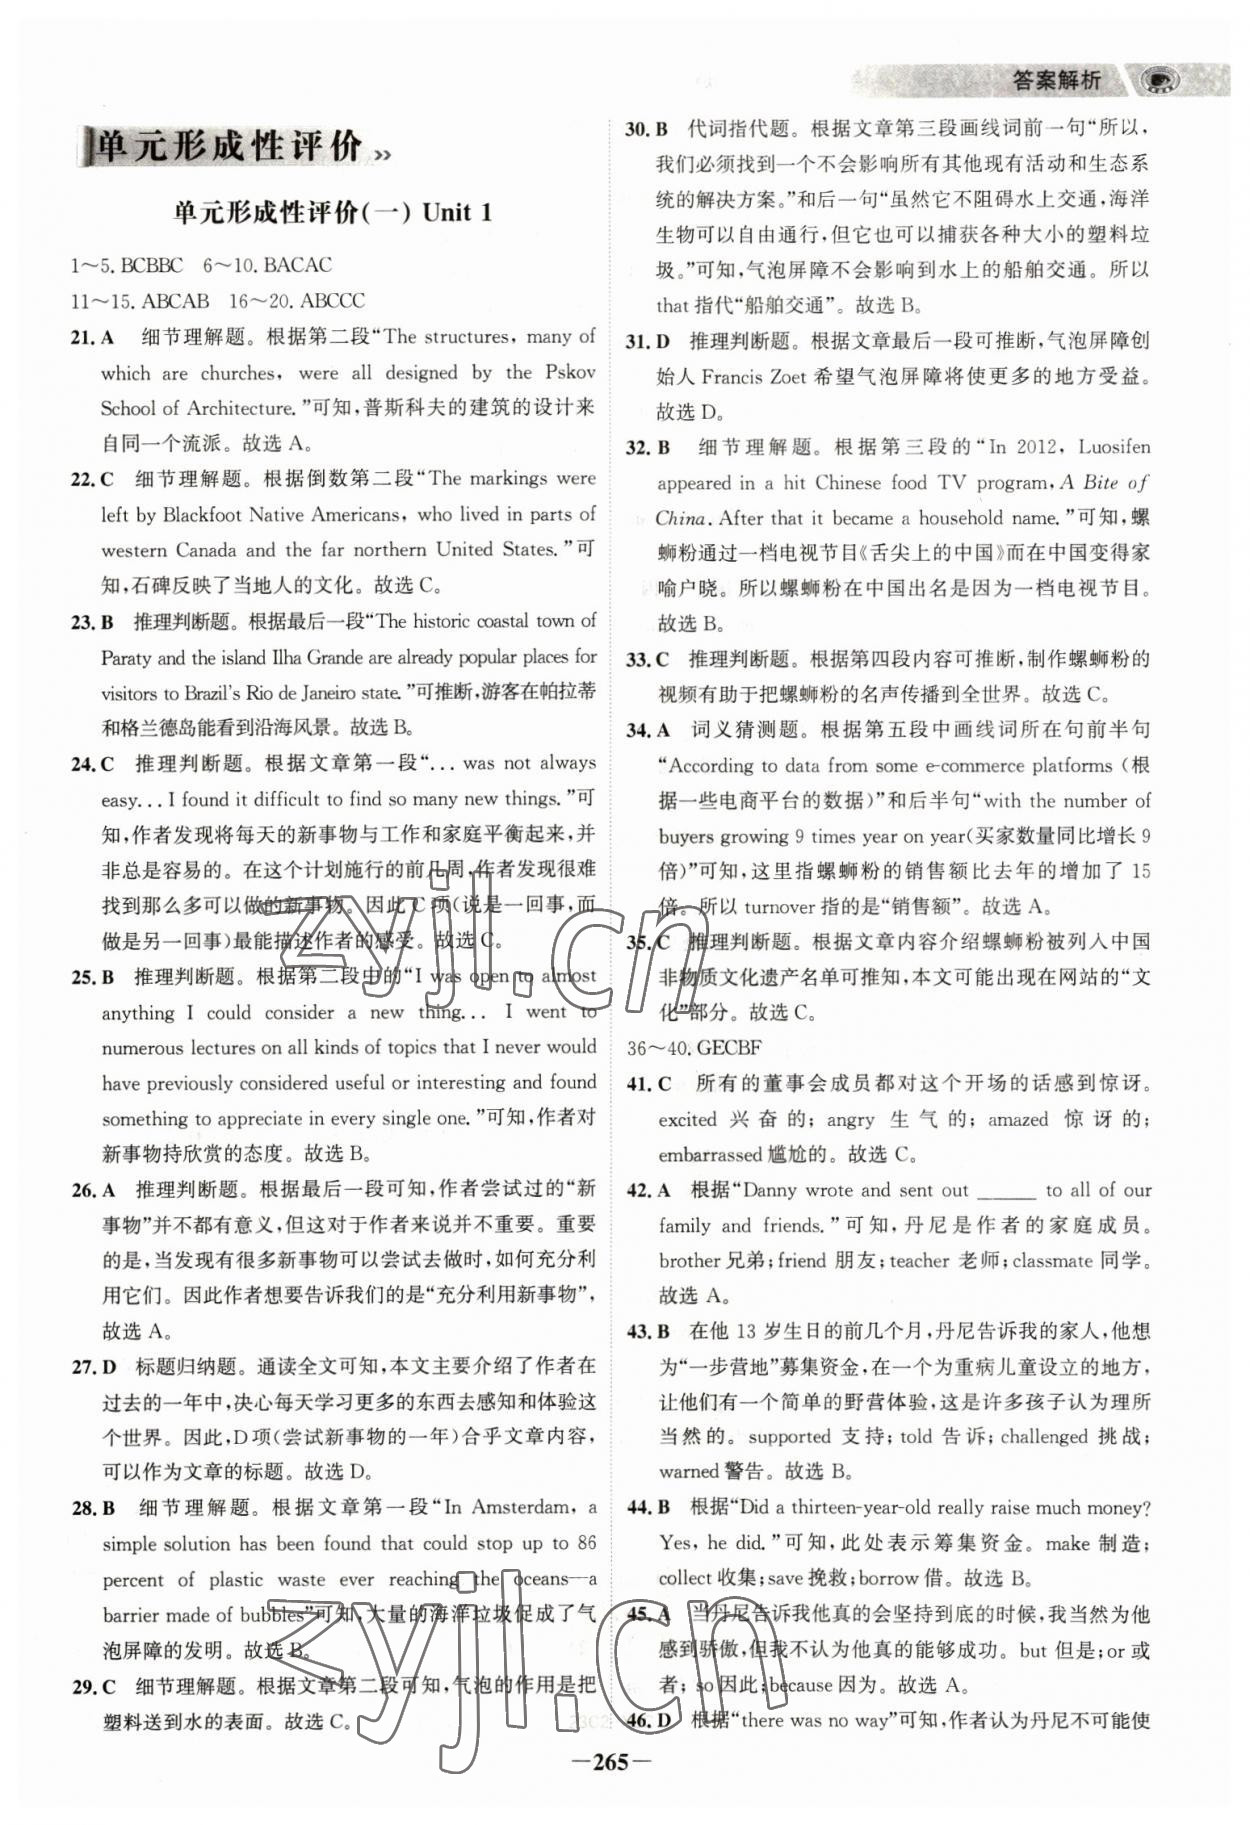 答案解析
单元形成性评价
单元形成性评价(一) Unit 1
1～5. BCBBC　6～10. BACAC
11～15. ABCAB　16～20. ABCCC
21. A　细节理解题。根据第二段“The structures, many of
which are churches, were all designed by the Pskov
School of Architecture.”可知,普斯科夫的建筑的设计来
自同一个流派。故选 A。
22. C　细节理解题。根据倒数第二段“The markings were
left by Blackfoot Native Americans, who lived in parts of
western Canada and the far northern United States.”可
知,石碑反映了当地人的文化。故选 C。
23. B　推理判断题。根据最后一段“The historic coastal town of
Paraty and the island Ilha Grande are already popular places for
visitors to Brazil's Rio de Janeiro state.”可推断,游客在帕拉蒂
和格兰德岛能看到沿海风景。故选 B。
24. C　推理判断题。根据文章第一段“... was not always
easy... I found it difficult to find so many new things.”可
知,作者发现将每天的新事物与工作和家庭平衡起来,并
非总是容易的。在这个计划施行的前几周,作者发现很难
找到那么多可以做的新事物。因此 C 项(说是一回事,而
做是另一回事)最能描述作者的感受。故选 C。
25. B　推理判断题。根据第二段中的“I was open to almost
anything I could consider a new thing... I went to
numerous lectures on all kinds of topics that I never would
have previously considered useful or interesting and found
something to appreciate in every single one.”可知,作者对
新事物持欣赏的态度。故选 B。
26. A　推理判断题。根据最后一段可知,作者尝试过的“新
事物”并不都有意义,但这对于作者来说并不重要。重要
的是,当发现有很多新事物可以尝试去做时,如何充分利
用它们。因此作者想要告诉我们的是“充分利用新事物”,
故选 A。
27. D　标题归纳题。通读全文可知,本文主要介绍了作者在
过去的一年中,决心每天学习更多的东西去感知和体验这
个世界。因此,D 项(尝试新事物的一年)合乎文章内容,
可以作为文章的标题。故选 D。
28. B　细节理解题。根据文章第一段“In Amsterdam, a
simple solution has been found that could stop up to 86
percent of plastic waste ever reaching the oceans—a
barrier made of bubbles”可知,大量的海洋垃圾促成了气
泡屏障的发明。故选 B。
29. C　细节理解题。根据文章第二段可知,气泡的作用是把
塑料送到水的表面。故选 C。
30. B　代词指代题。根据文章第三段画线词前一句“所以,
我们必须找到一个不会影响所有其他现有活动和生态系
统的解决方案。”和后一句“虽然它不阻碍水上交通,海洋
生物可以自由通行,但它也可以捕获各种大小的塑料垃
圾。”可知,气泡屏障不会影响到水上的船舶交通。所以
that 指代“船舶交通”。故选 B。
31. D　推理判断题。根据文章最后一段可推断,气泡屏障创
始人 Francis Zoet 希望气泡屏障将使更多的地方受益。
故选 D。
32. B　细节理解题。根据第三段的“In 2012, Luosifen
appeared in a hit Chinese food TV program, A Bite of
China. After that it became a household name.”可知,螺
蛳粉通过一档电视节目《舌尖上的中国》而在中国变得家
喻户晓。所以螺蛳粉在中国出名是因为一档电视节目。
故选 B。
33. C　推理判断题。根据第四段内容可推断,制作螺蛳粉的
视频有助于把螺蛳粉的名声传播到全世界。故选 C。
34. A　词义猜测题。根据第五段中画线词所在句前半句
“According to data from some e-commerce platforms (根
据一些电商平台的数据)”和后半句“with the number of
buyers growing 9 times year on year(买家数量同比增长 9
倍)”可知,这里指螺蛳粉的销售额比去年的增加了 15
倍。所以 turnover 指的是“销售额”。故选 A。
35. C　推理判断题。根据文章内容介绍螺蛳粉被列入中国
非物质文化遗产名单可推知,本文可能出现在网站的“文
化”部分。故选 C。
36～40. GECBF
41. C　所有的董事会成员都对这个开场的话感到惊讶。
excited 兴奋的; angry 生气的; amazed 惊讶的;
embarrassed 尴尬的。故选 C。
42. A　根据“Danny wrote and sent out ______ to all of our
family and friends.”可知,丹尼是作者的家庭成员。
brother 兄弟;friend 朋友;teacher 老师;classmate 同学。
故选 A。
43. B　在他 13 岁生日的前几个月,丹尼告诉我的家人,他想
为“一步营地”募集资金,在一个为重病儿童设立的地方,
让他们有一个简单的野营体验,这是许多孩子认为理所
当然的。supported 支持;told 告诉;challenged 挑战;
warned 警告。故选 B。
44. B　根据“Did a thirteen-year-old really raise much money?
Yes, he did.”可知,此处表示筹集资金。make 制造;
collect 收集;save 挽救;borrow 借。故选 B。
45. A　当丹尼告诉我他真的会坚持到底的时候,我当然为他
感到骄傲,但我不认为他真的能够成功。but 但是;or 或
者;so 因此;because 因为。故选 A。
46. D　根据“there was no way”可知,作者认为丹尼不可能使
—265—
zyjl.cn
zyjl.cn